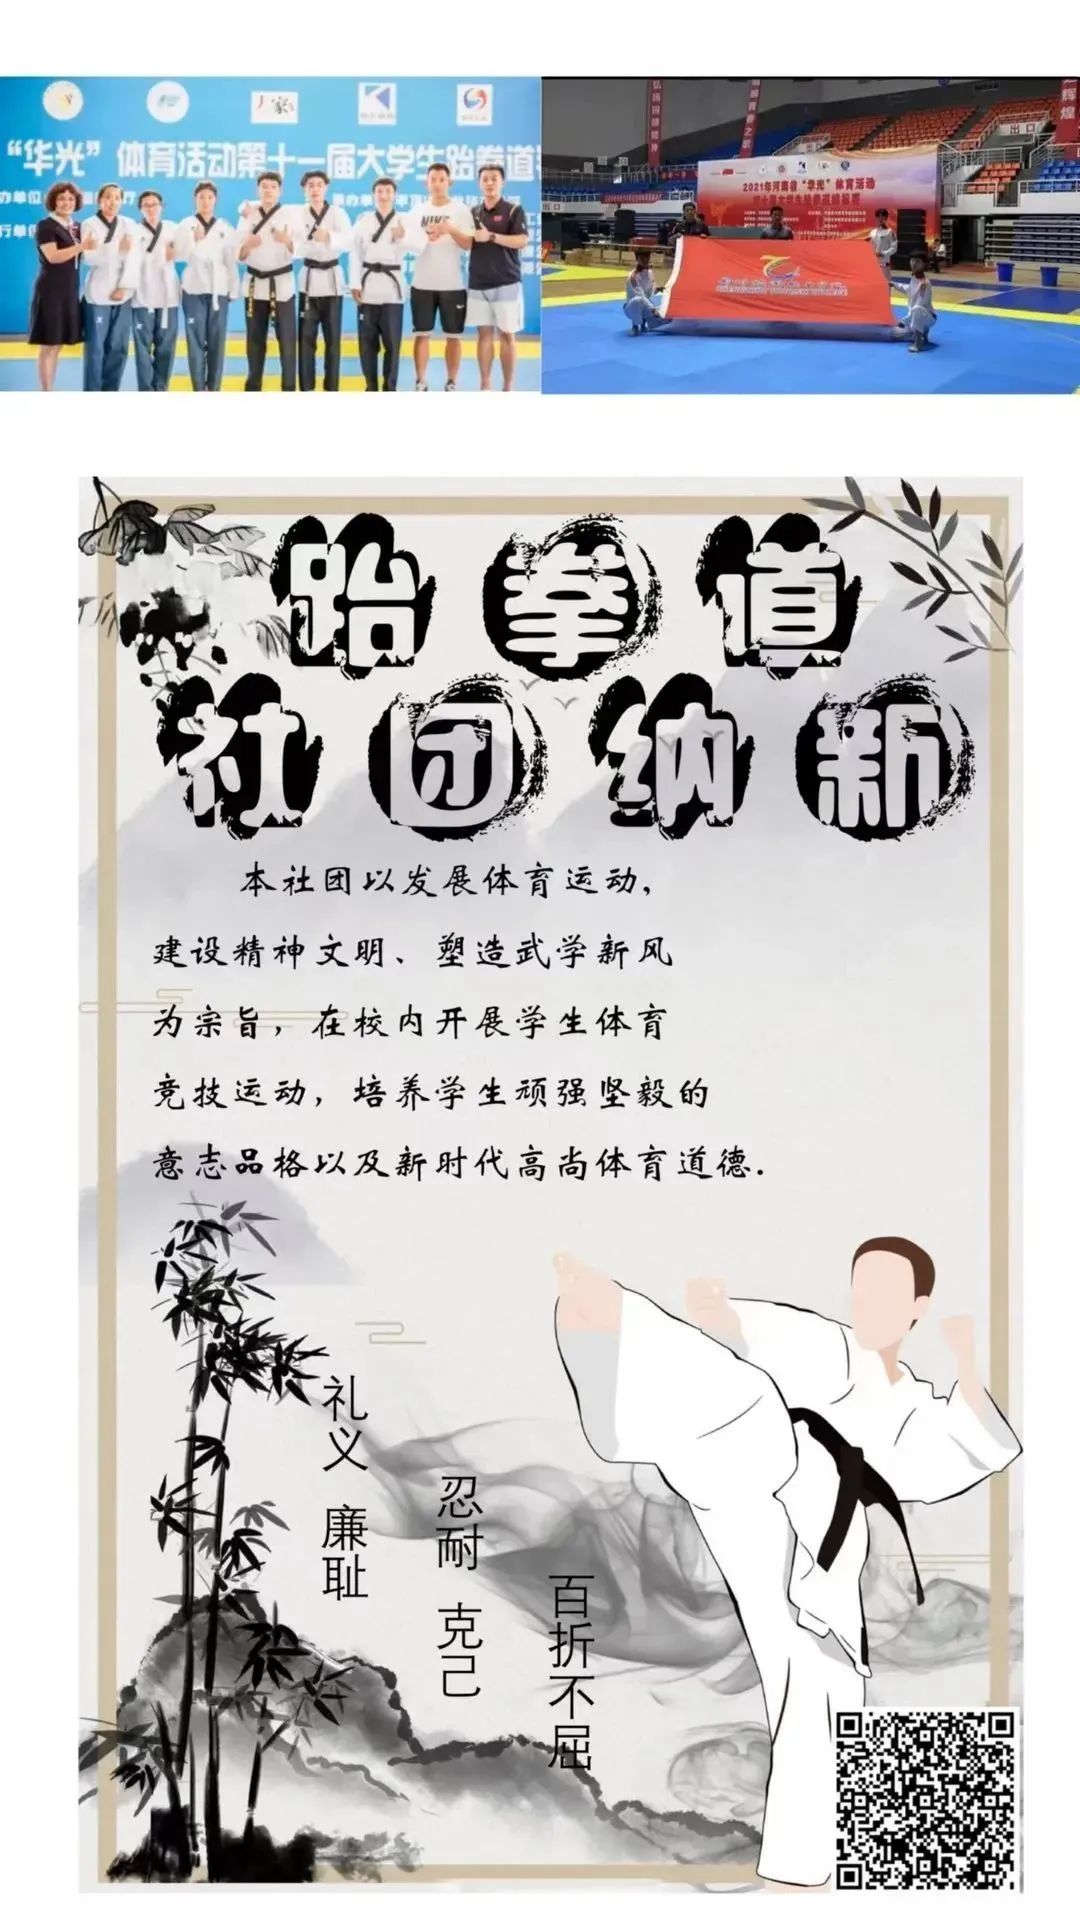 “华光”体育活动第十一届大学生跆拳道
2021年河南省“华光”体育活动
出口
跆拳道
社团纳新
本社团以发展体育运动，
建设精神文明、塑造武学新风
为宗旨，在校内开展学生体育
竞技运动，培养学生顽强坚毅的
意志品格以及新时代高尚体育道德.
礼义 廉耻
忍耐 克己
百折不屈